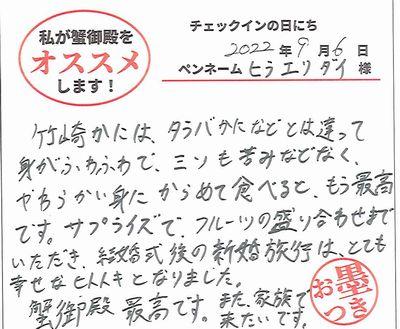 私が蟹御殿を
オススメ
します！
チェックインの日にち
2022年9月6日
ペンネーム ヒラエリダイ 様
竹崎かには、タラバかになどとは違って
身がふわふわで、ミソも苦みなどなく、
やわらかい身にからめて食べると、もう最高
です。サプライズで、フルーツの盛り合わせまで
いただき、結婚式後の新婚旅行は、とても
幸せなヒトトキとなりました。
蟹御殿 最高です。また、家族で
来たいです。
お墨つき